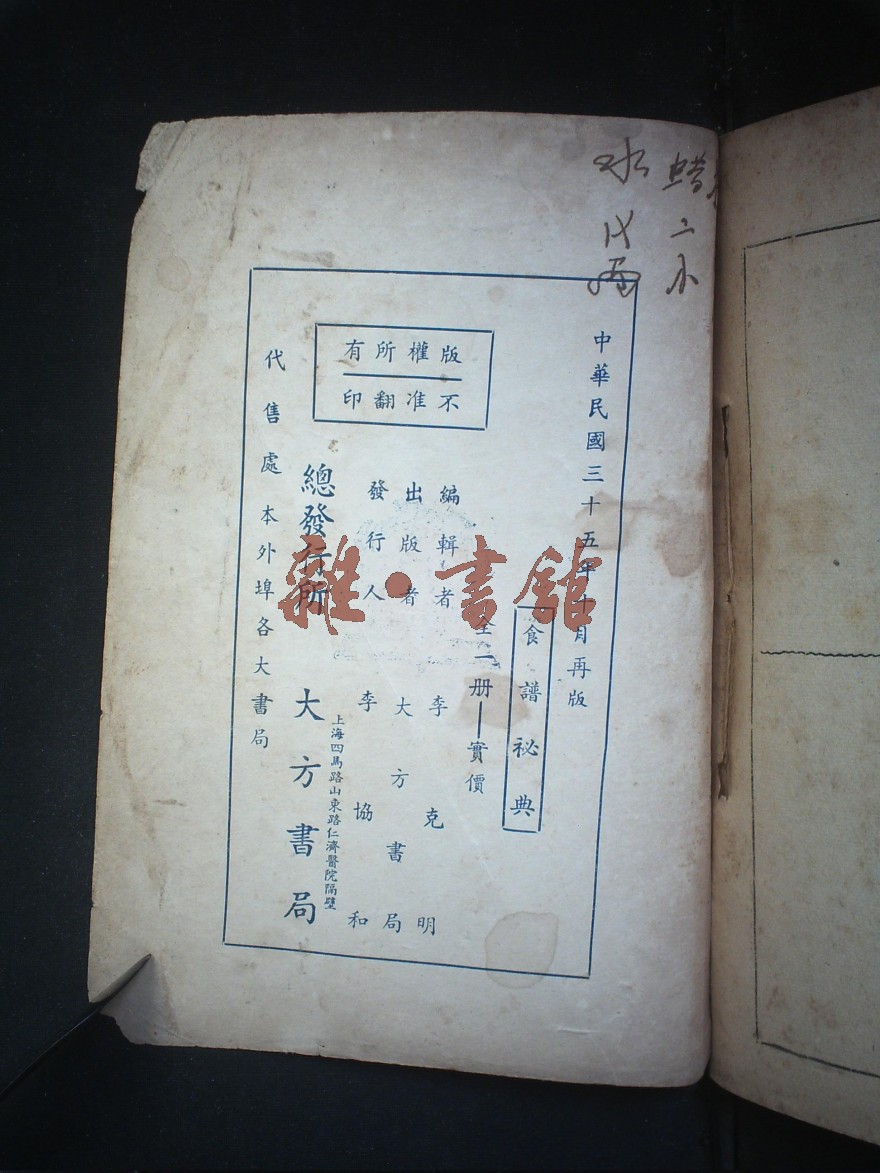 中華民國三十五年十月再版
食譜祕典
全一册——實價
編輯者 李克明
出版者 大方書局
發行人 李協和
版權所有
不准翻印
總發行所 大方書局
上海四馬路山東路仁濟醫院隔壁
代售處本外埠各大書局
雜·書館
二小
水